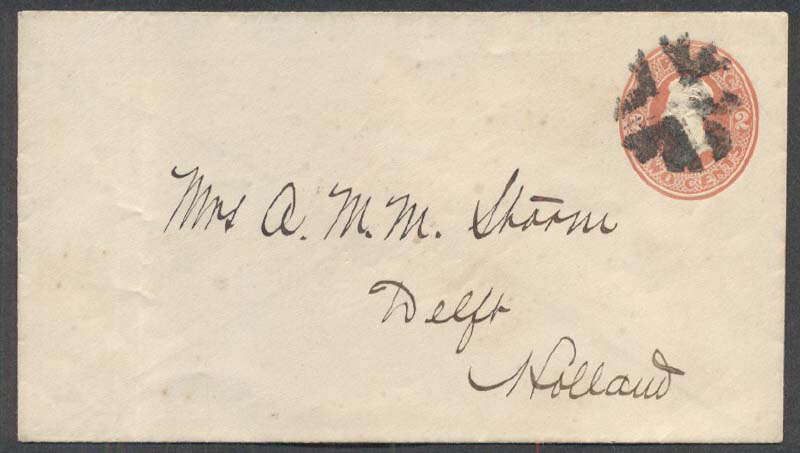 2
Mrs A. M. M. Storm
Delft
Holland